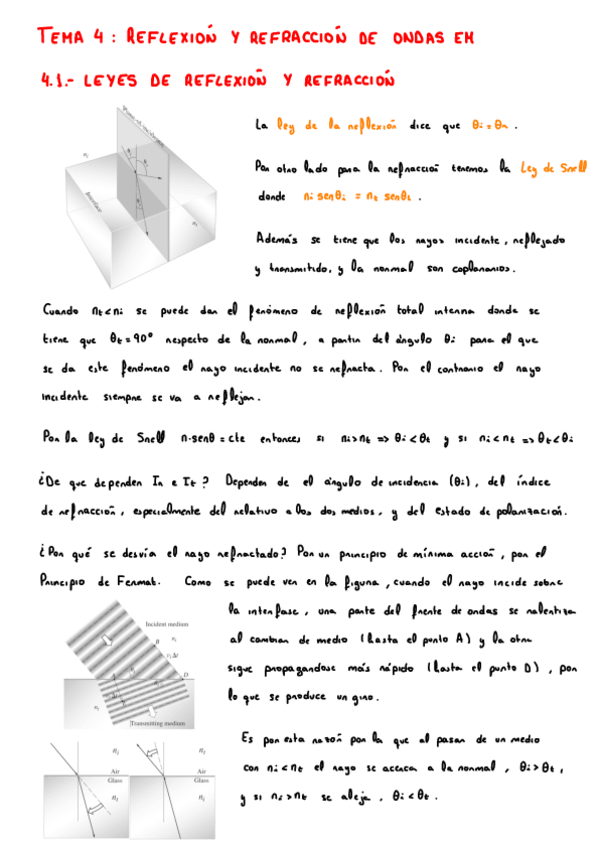 TEMA 4 : REFLEXIÓN Y REFRACCIÓN DE ONDAS EM
4.1.- LEYES DE REFLEXIÓN Y REFRACCIÓN
Plane of incidence
Interface
La ley de la reflexión dice que θi = θr .
Por otro lado para la refracción tenemos la Ley de Snell
donde ni senθi = nt senθt .
Además se tiene que los rayos incidente, reflejado
y transmitido, y la normal son coplanarios.
Cuando nt<ni se puede dar el fenómeno de reflexión total interna donde se
tiene que θt = 90° respecto de la normal, a partir del ángulo θi para el que
se da este fenómeno el rayo incidente no se refracta. Por el contrario el rayo
incidente siempre se va a reflejar.
Por la ley de Snell n·senθ = cte entonces si ni>nt => θi<θt y si ni<nt => θt<θi
¿De que dependen Ir e It? Depender de el ángulo de incidencia (θi), del índice
de refracción, especialmente del relativo a los dos medios, y del estado de polarización.
¿Por qué se desvía el rayo refractado? Por un principio de mínima acción, por el
Principio de Fermat. Como se puede ver en la figura, cuando el rayo incide sobre
la interfase, una parte del frente de ondas se ralentiza
al cambiar de medio (hasta el punto A) y la otra
sigue propagandose más rápido (hasta el punto D), por
lo que se produce un giro.
Incident medium
ni
B
vi Δt
A
D
Transmitting medium
Es por esta razón por la que al pasar de un medio
con ni<nt el rayo se acerca a la normal, θi>θt,
y si ni>nt se aleja, θi<θt.
ni
Air
Glass
nt
nt
Air
Glass
ni